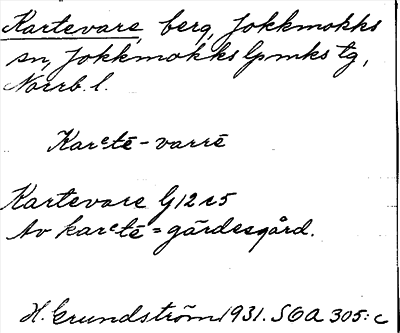 Kartevare, berg, Jokkmokks
sn, Jokkmokks lpmks tg,
Norrb. l.
Karᵉtē-varrē
Kartevare G12 r5
Av karᵉtē = gärdesgård.
H. Grundström 1931. SOA 305: c